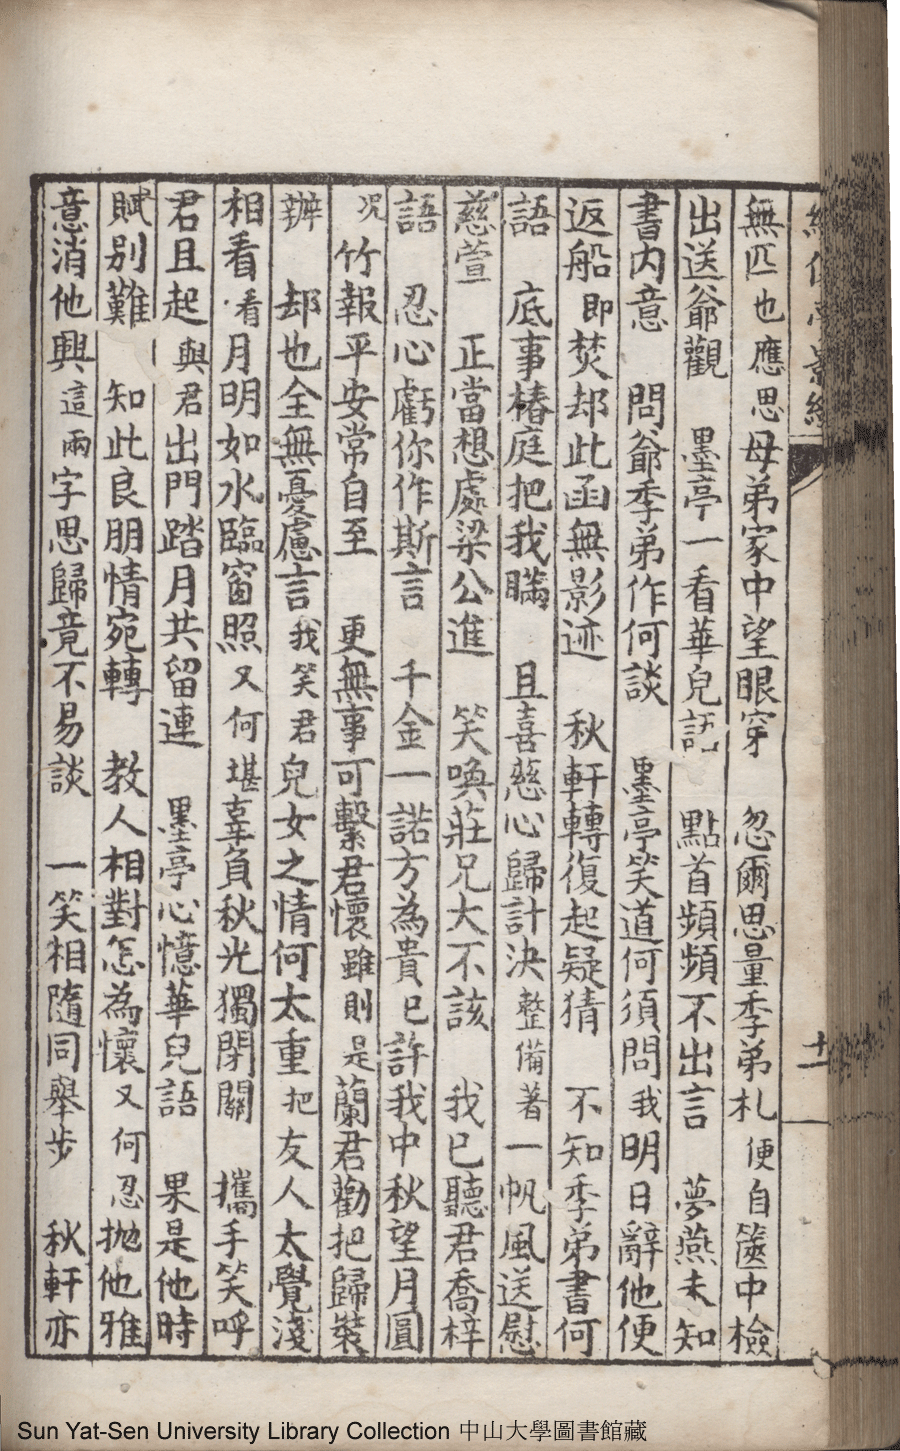 無匹也應思母弟家中望眼穿　忽爾思量季弟札便自篋中檢
出送爺觀　墨亭一看華兒語　點首頻頻不出言　夢燕未知
書內意　問爺季弟作何談　墨亭笑道何須問我明日辭他便
返船即焚却此函無影迹　秋軒轉復起疑猜　不知季弟書何
語　底事椿庭把我瞞　且喜慈心歸計決整備著一帆風送慰
慈萱　正當想處梁公進　笑喚莊兄大不該　我已聽君喬梓
語　忍心虧你作斯言　千金一諾方為貴已許我中秋望月圓
況竹報平安常自至　更無事可繫君懷雖則是蘭君勸把歸裝
辦　却也全無憂慮言我笑君兒女之情何太重把友人太覺淺
相看看月明如水臨窗照又何堪辜負秋光獨閉關　攜手笑呼
君且起與君出門踏月共留連　墨亭心憶華兒語　果是他時
賦別難　知此良朋情宛轉　教人相對怎為懷又何忍拋他雅
意消他興這兩字思歸竟不易談　一笑相隨同舉步　秋軒亦
十一
Sun Yat-Sen University Library Collection 中山大學圖書館藏